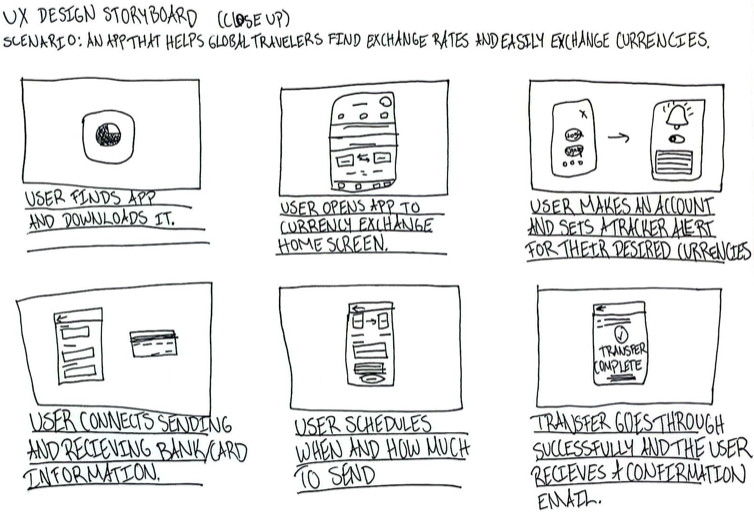 UX DESIGN STORYBOARD (CLOSE UP)
SCENARIO: AN APP THAT HELPS GLOBAL TRAVELERS FIND EXCHANGE RATES AND EASILY EXCHANGE CURRENCIES.
USER FINDS APP
AND DOWNLOADS IT.
USER OPENS APP TO
CURRENCY EXCHANGE
HOME SCREEN.
X
USER MAKES AN ACCOUNT
AND SETS A TRACKER ALERT
FOR THEIR DESIRED CURRENCIES
USER CONNECTS SENDING
AND RECIEVING BANK/CARD
INFORMATION.
USER SCHEDULES
WHEN AND HOW MUCH
TO SEND
TRANSFER
COMPLETE
TRANSFER GOES THROUGH
SUCCESSFULLY AND THE USER
RECIEVES A CONFIRMATION
EMAIL.